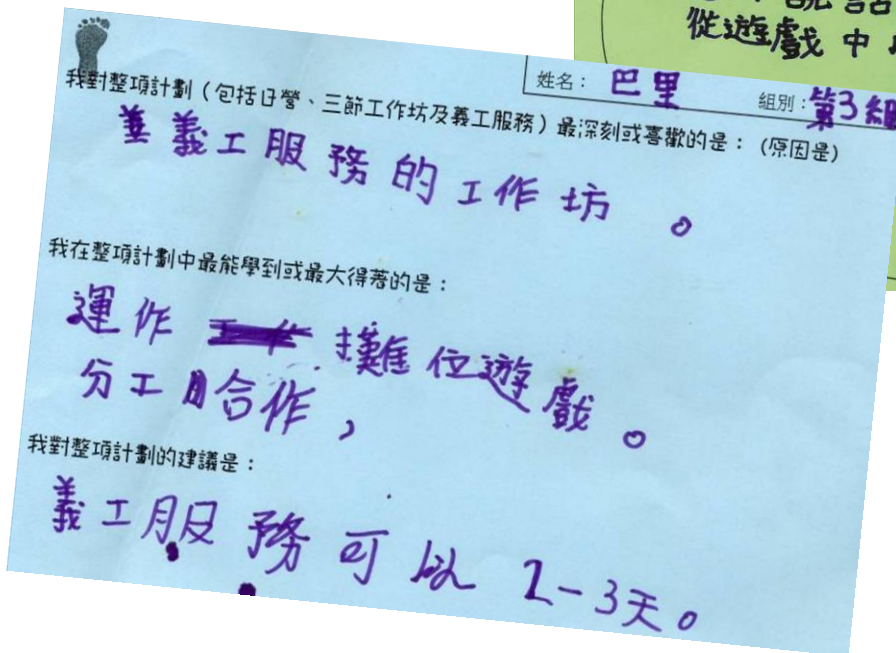 從遊戲中
姓名：巴里
組別：第3組
我對整項計劃（包括日營、三節工作坊及義工服務）最深刻或喜歡的是：（原因是）
義工服務的工作坊。
我在整項計劃中最能學到或最大得著的是：
運作攤位遊戲。
分工合作，
我對整項計劃的建議是：
義工服務可以2-3天。